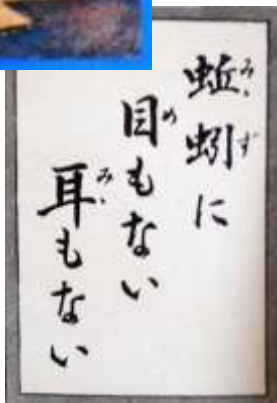 蚯蚓に
目もない
耳もない